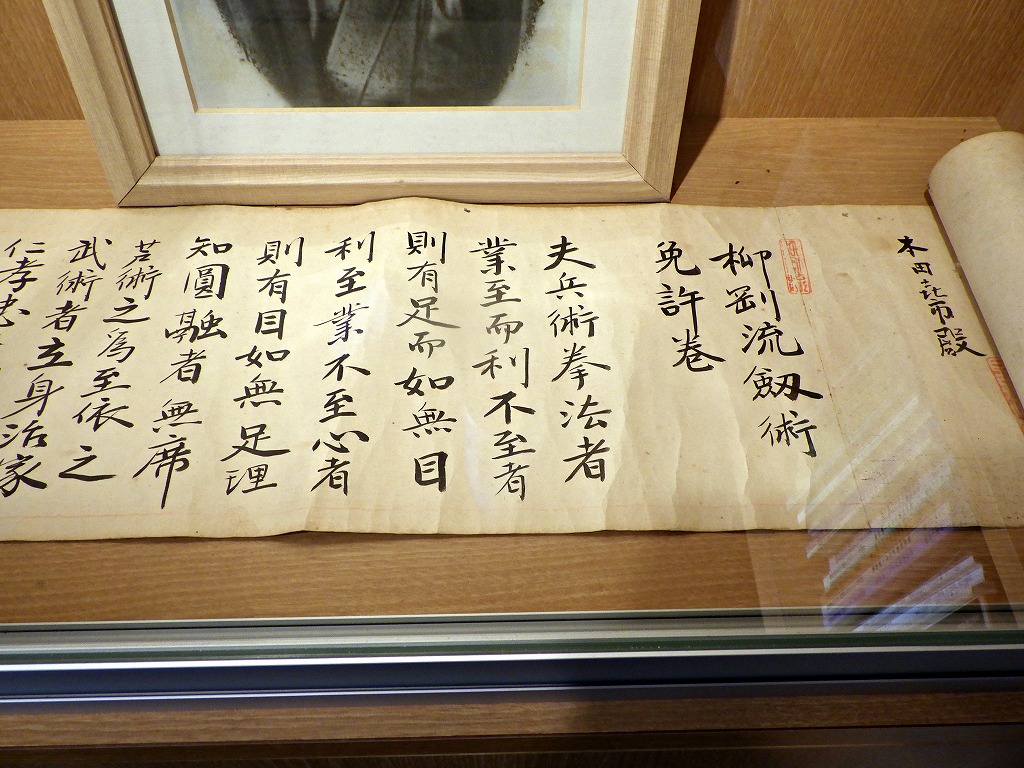 本田 殿
柳剛流剱術
免許巻
夫兵術拳法者
業至而利不至者
則有足而如無目
利至業不至心者
則有目如無足理
知圓融者無席
術之為至依之
武術者立身治家
仁孝忠